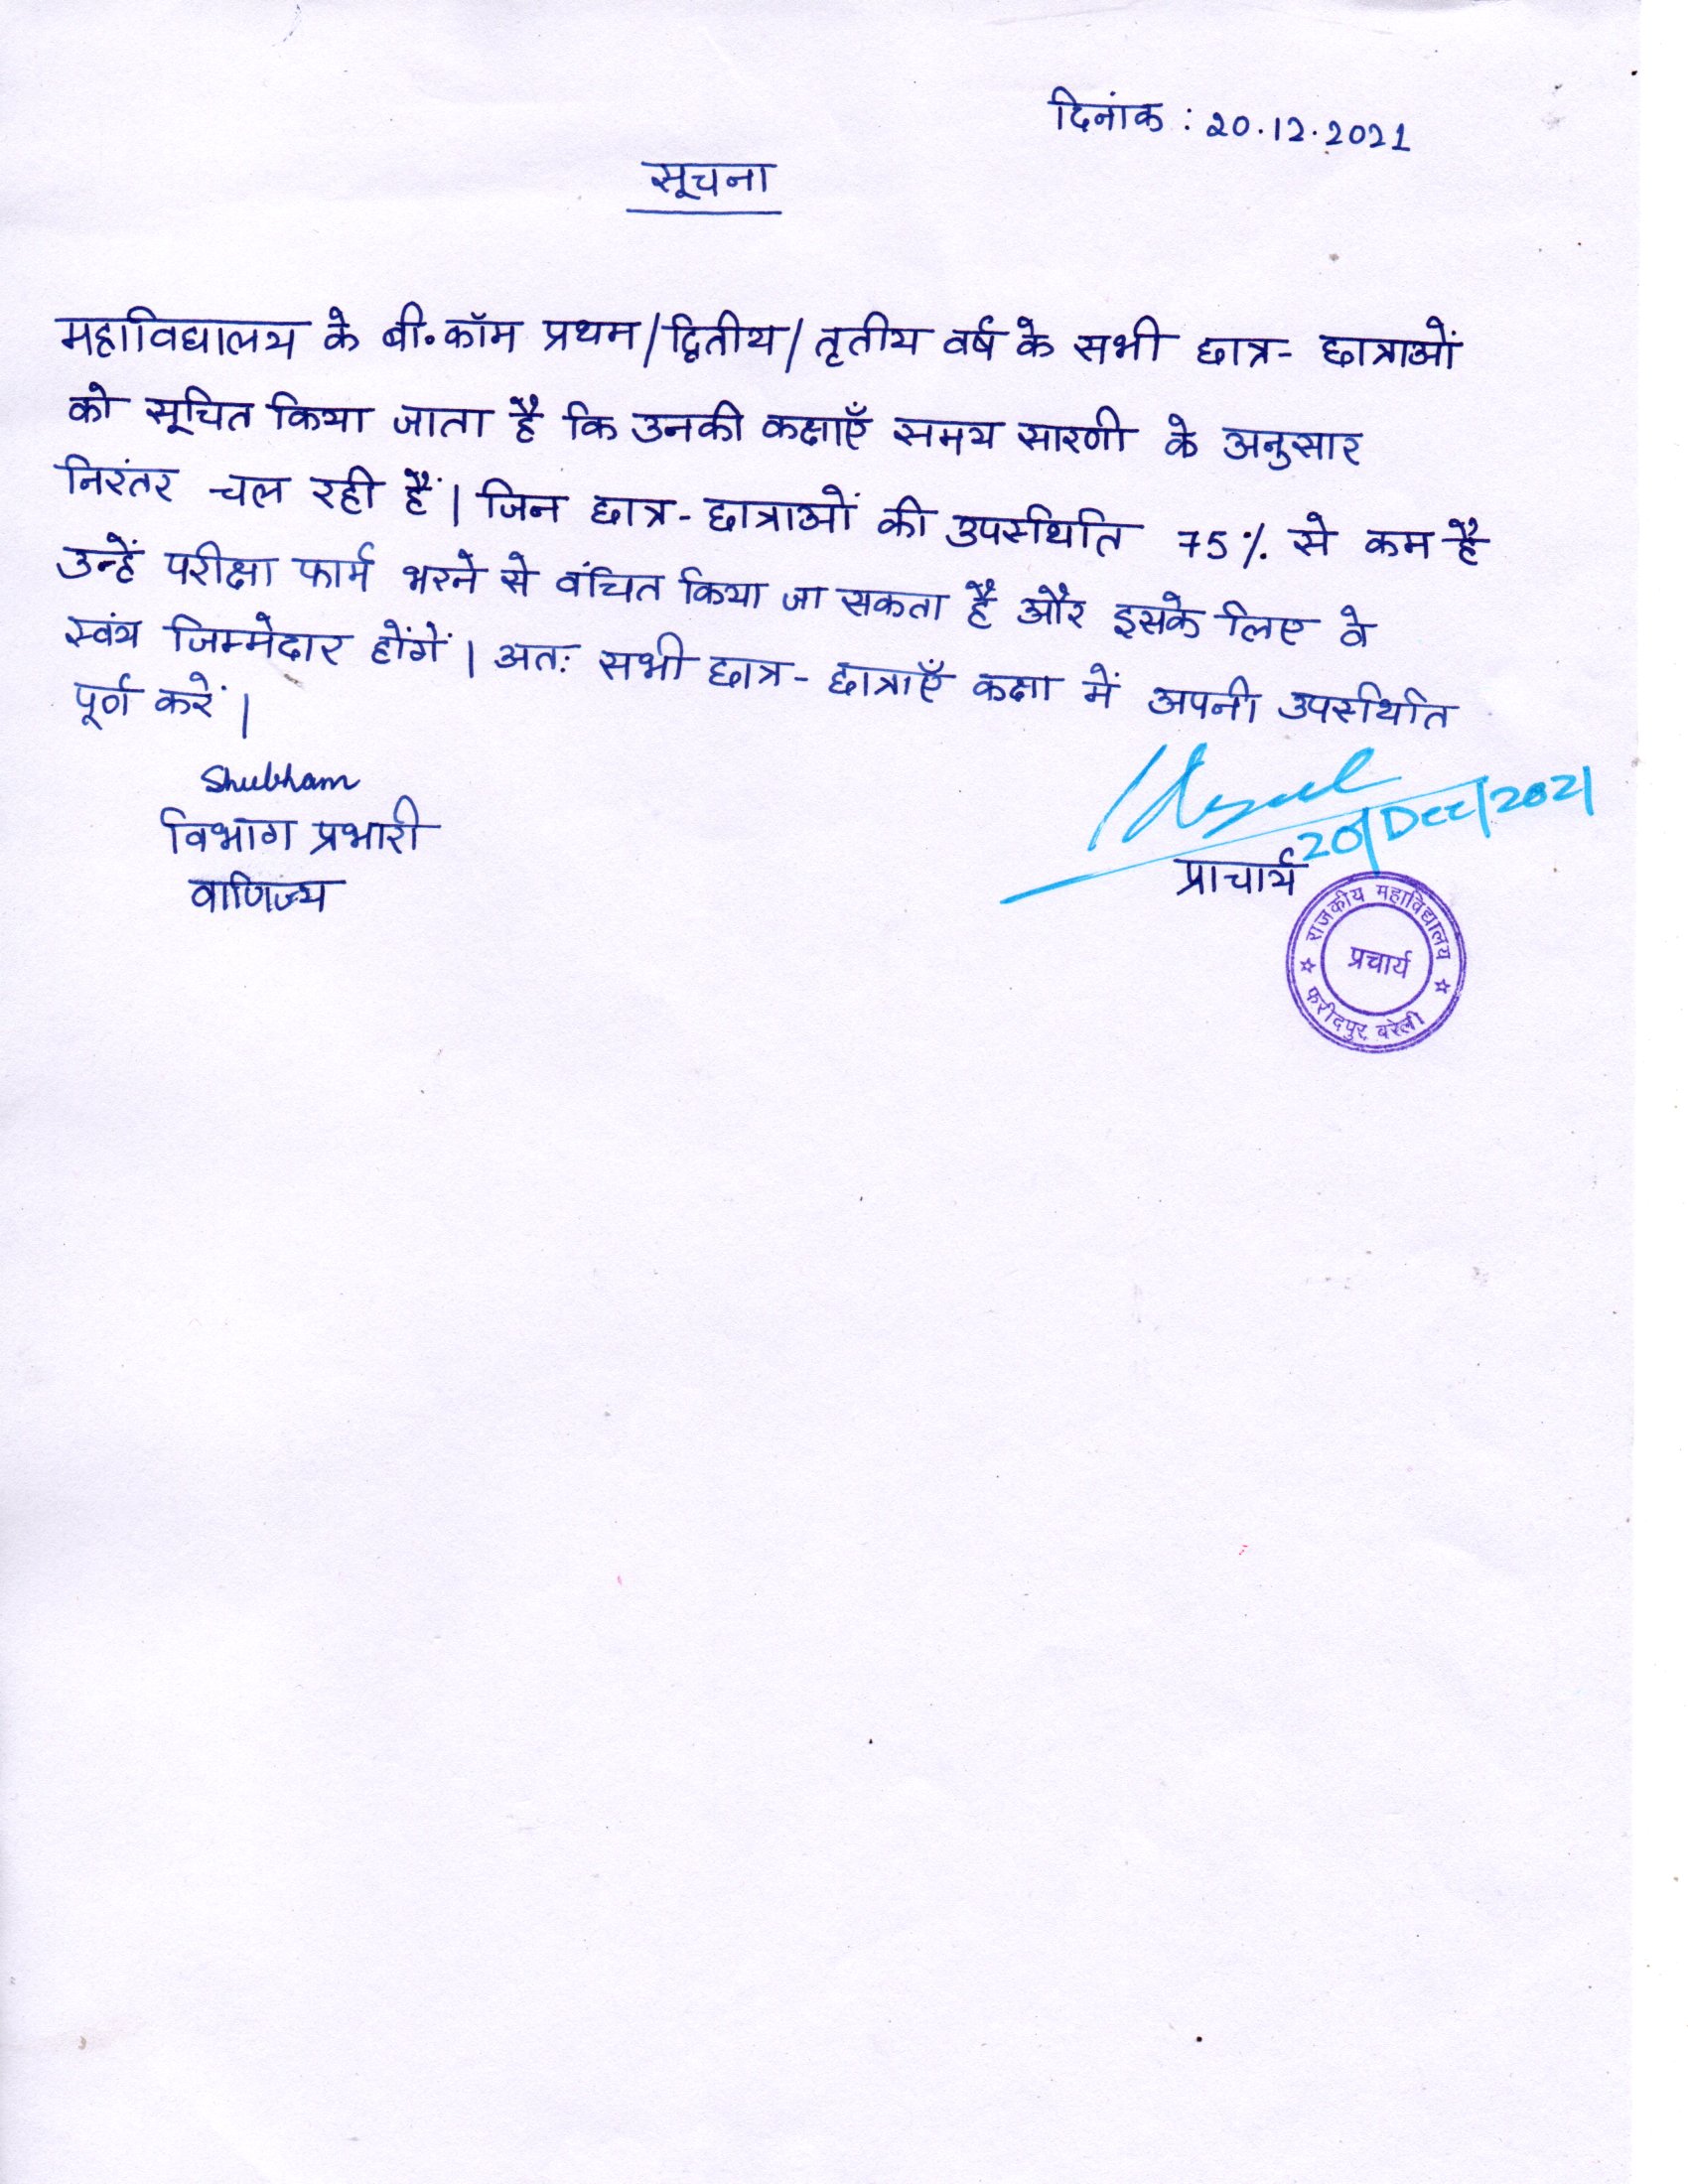 दिनांक : 20.12.2021
सूचना
महाविद्यालय के बी.कॉम प्रथम/द्वितीय/तृतीय वर्ष के सभी छात्र- छात्राओं
को सूचित किया जाता है कि उनकी कक्षाएँ समय सारणी के अनुसार
निरंतर चल रही हैं। जिन छात्र-छात्राओं की उपस्थिति 75% से कम है
उन्हें परीक्षा फार्म भरने से वंचित किया जा सकता है और इसके लिए वे
स्वंय जिम्मेदार होंगें। अतः सभी छात्र-छात्राएँ कक्षा में अपनी उपस्थित
पूर्ण करें।
Shubham
विभाग प्रभारी
वाणिज्य
20/Dec/2021
प्राचार्य
राजकीय महाविद्यालय
प्रचार्य
फरीदपुर, बरेली